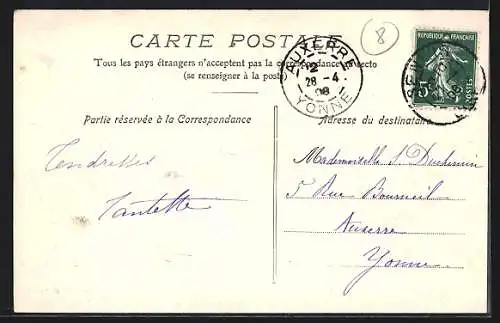 CARTE POSTALE
Tous les pays étrangers n'acceptent pas la correspondance au recto
(se renseigner à la poste)
8
AUXERRE
28 -4
08
YONNE
REPUBLIQUE FRANÇAISE
5c
POSTES
Partie réservée à la Correspondance
Adresse du destinataire
Tendresses
Tantette
Mademoiselle S. Duchemin
5 Rue Bourneil
Auxerre
Yonne